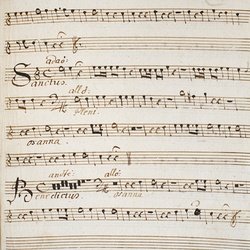 adag:
Sanctus.
all:o
Pleni
osanna
andte: allo:
Benedictus. osanna